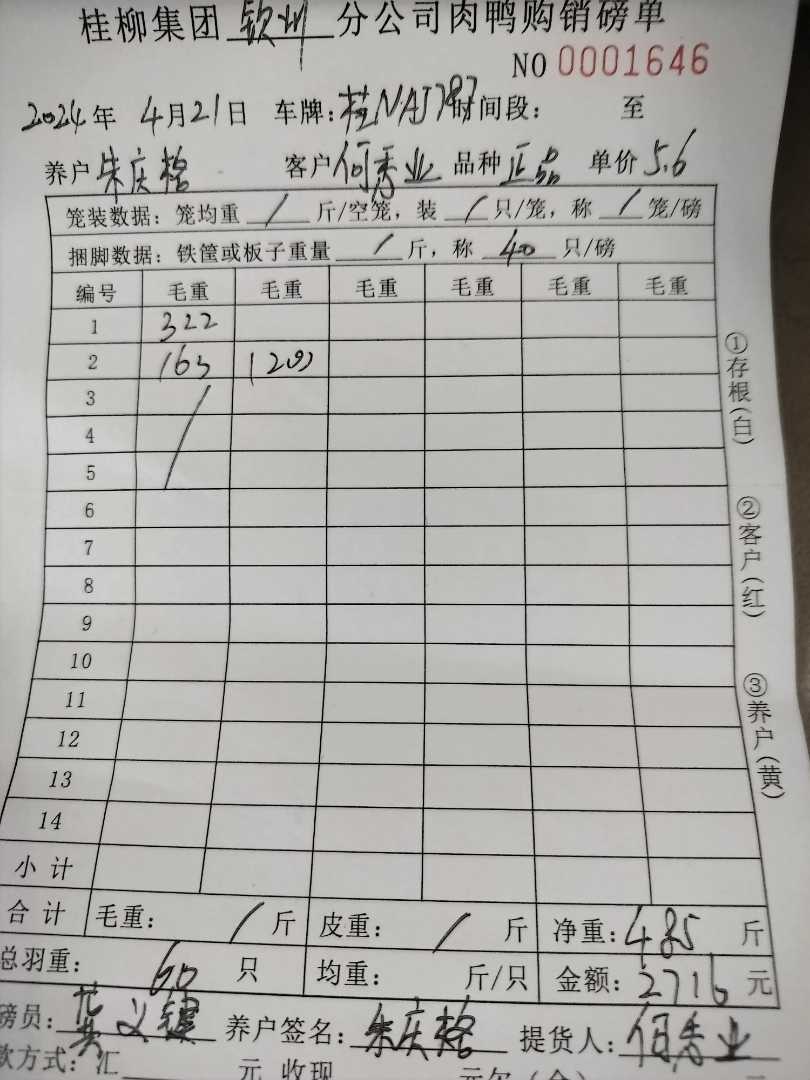 桂柳集团 钦州 分公司肉鸭购销磅单
NO 0001646
2024年 4月21日 车牌:桂NAJ787 时间段: 至
养户 朱庆格 客户 何秀业 品种 正品 单价 5.6
笼装数据: 笼均重 / 斤/空笼, 装 / 只/笼, 称 / 笼/磅
捆脚数据: 铁筐或板子重量 / 斤, 称 40 只/磅
编号 毛重 毛重 毛重 毛重 毛重 毛重
1 322
2 163 (20)
3
4
5
6
7
8
9
10
11
12
13
14
小计
合计 毛重: / 斤 皮重: / 斤 净重: 485 斤
总羽重: 60 只 均重: 斤/只 金额: 2716 元
磅员: 义键 养户签名: 朱庆格 提货人: 何秀业
款方式: 汇 元 收现 元欠(余)
①存根(白)
②客户(红)
③养户(黄)